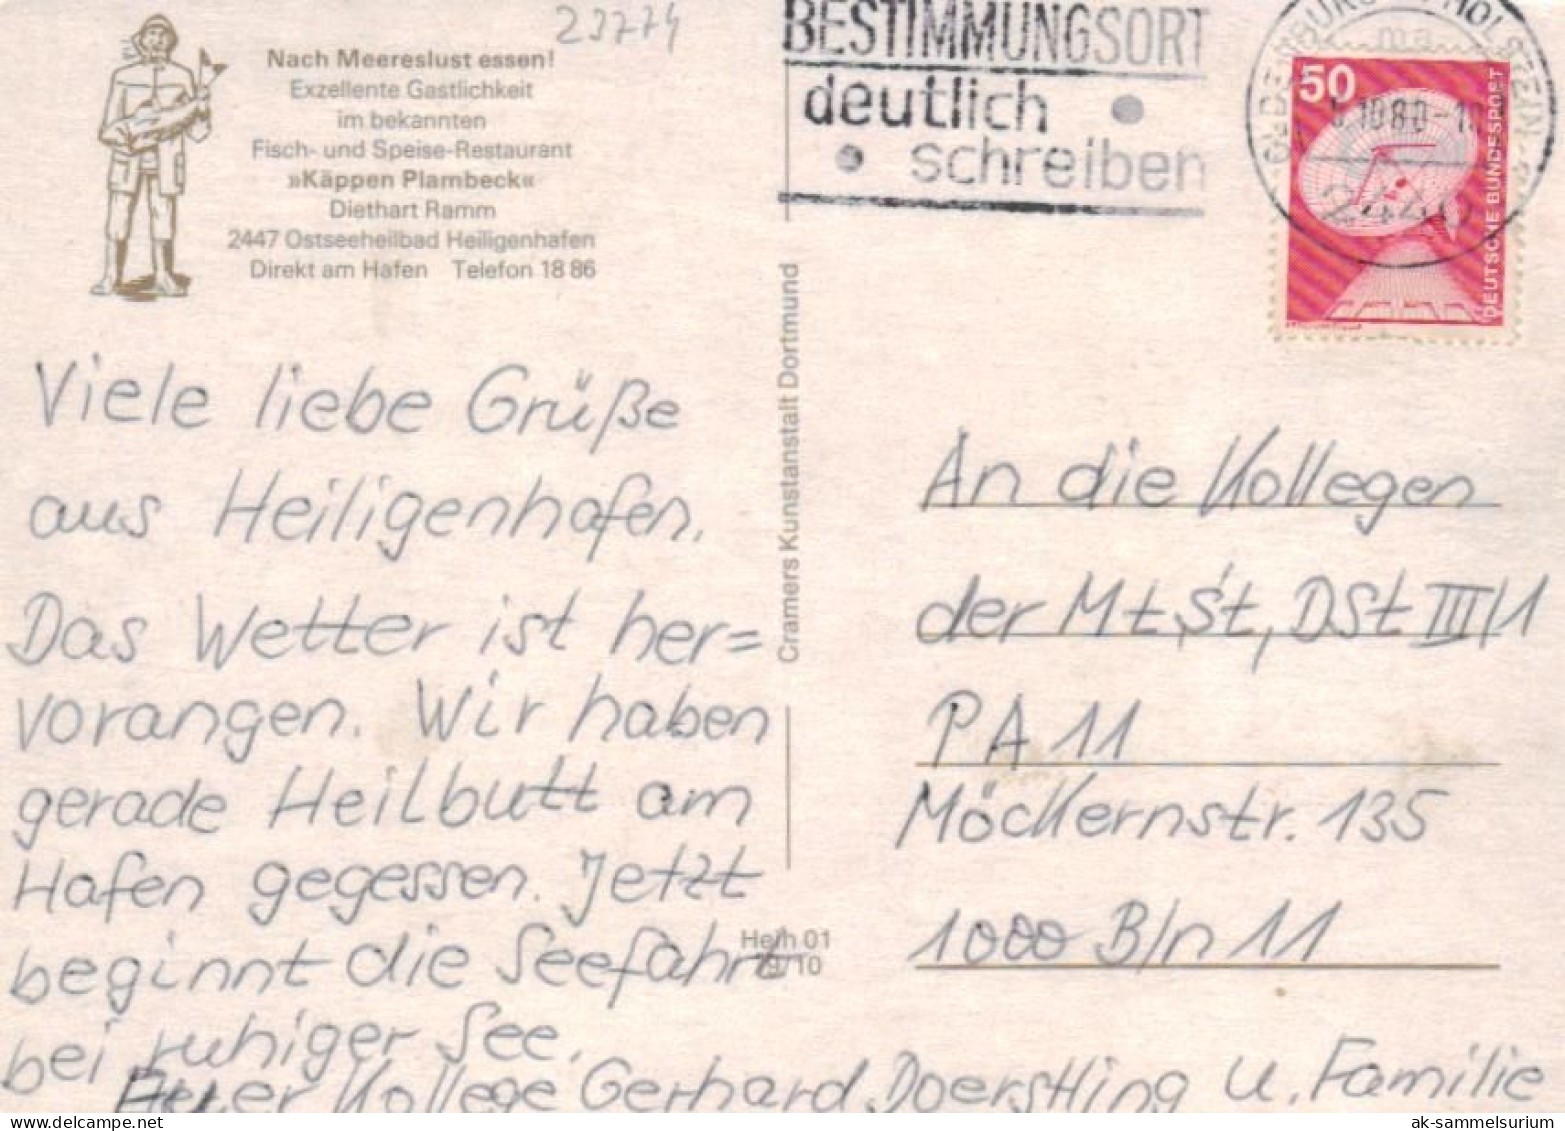 23774
Nach Meereslust essen!
Exzellente Gastlichkeit
im bekannten
Fisch- und Speise-Restaurant
»Käppen Plambeck«
Diethart Ramm
2447 Ostseeheilbad Heiligenhafen
Direkt am Hafen Telefon 18 86
BESTIMMUNGSORT
deutlich
schreiben
OLDENBURG HOLSTEIN
ma
10 80-10
2440
50
DEUTSCHE BUNDESPOST
Viele liebe Grüße
aus Heiligenhafen.
Das Wetter ist her=
vorangen. Wir haben
gerade Heilbutt am
Hafen gegessen. Jetzt
beginnt die Seefahrt
bei ruhiger See.
Euer Kollege Gerhard Doerstling u. Familie
Cramers Kunstanstalt Dortmund
Hejh 01
79/10
An die Kollegen
der MtSt, DSt III/1
PA 11
Möckernstr. 135
1000 Bln 11
ak-sammelsurium